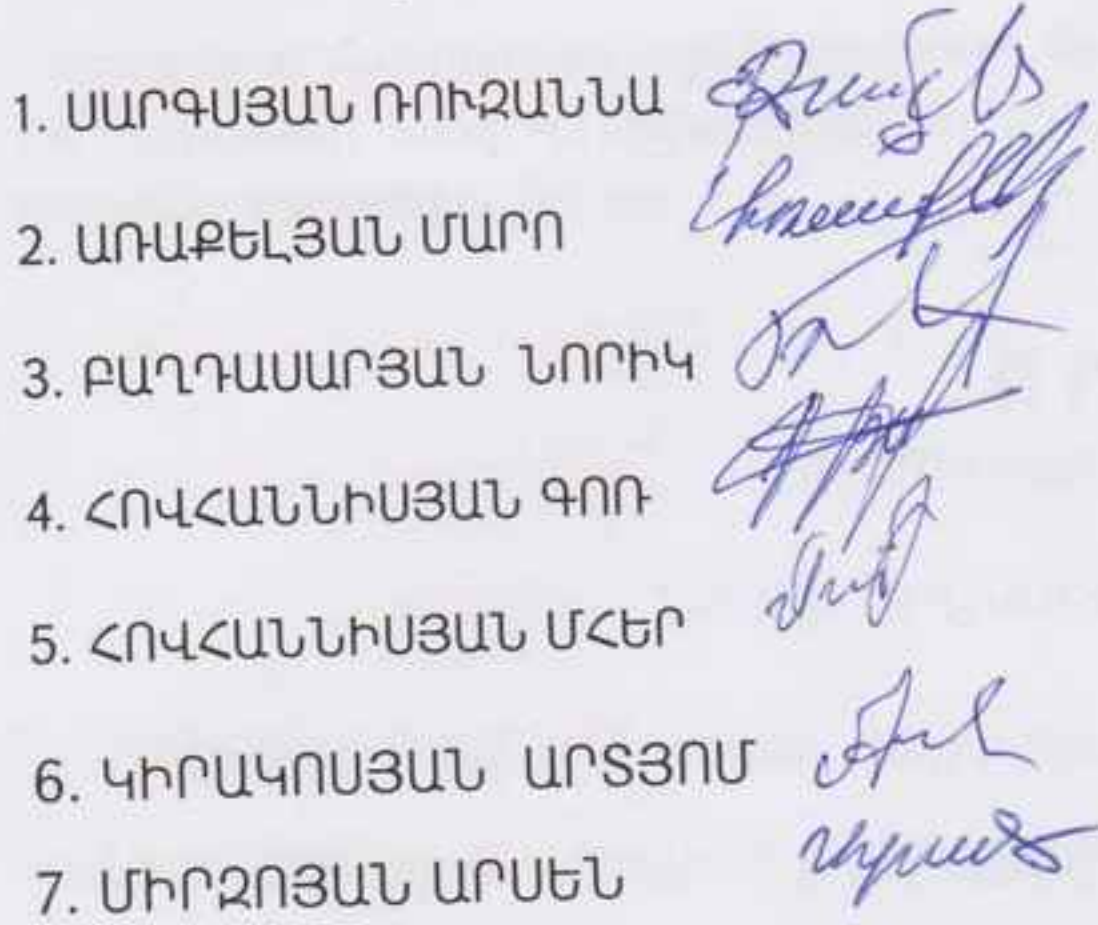 1. ՍԱՐԳՍՅԱՆ ՌՈՒԶԱՆՆԱ
2. ԱՌԱՔԵԼՅԱՆ ՄԱՐՈ
3. ԲԱՂԴԱՍԱՐՅԱՆ ՆՈՐԻԿ
4. ՀՈՎՀԱՆՆԻՍՅԱՆ ԳՈՌ
5. ՀՈՎՀԱՆՆԻՍՅԱՆ ՄՀԵՐ
6. ԿԻՐԱԿՈՍՅԱՆ ԱՐՏՅՈՄ
7. ՄԻՐԶՈՅԱՆ ԱՐՍԵՆ